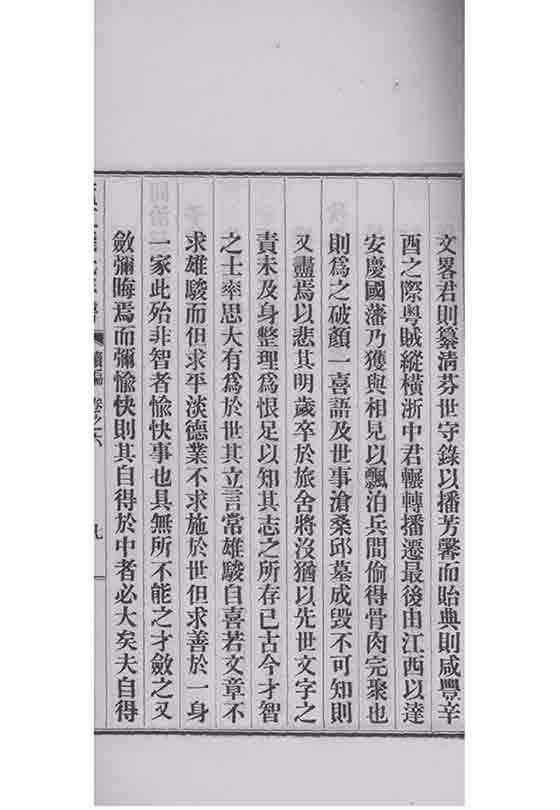 文畧君則纂淸芬世守錄以播芳馨而貽典則咸豐辛
酉之際粵賊縱橫浙中君輾轉播遷最後由江西以達
安慶國藩乃獲與相見以飄泊兵間偷得骨肉完聚也
則爲之破顏一喜語及世事滄桑邱墓成毀不可知則
又盡焉以悲其明歲卒於旅舍將沒猶以先世文字之
責未及身整理爲恨足以知其志之所存已古今才智
之士率思大有爲於世其立言常雄駿自喜若文章不
求雄駿而但求平淡德業不求施於世但求善於一身
一家此殆非智者愉快事也具無所不能之才斂之又
斂彌晦焉而彌愉快則其自得於中者必大矣夫自得
續編 卷之六
九